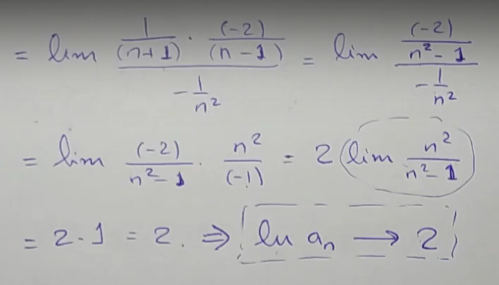 = lim \frac{\frac{1}{(n+1)} \cdot \frac{(-2)}{(n-1)}}{-\frac{1}{n^2}} = lim \frac{\frac{(-2)}{n^2-1}}{-\frac{1}{n^2}}
= lim \frac{(-2)}{n^2-1} \cdot \frac{n^2}{(-1)} = 2 lim \frac{n^2}{n^2-1}
= 2·1 = 2. ⇒ ln a_n → 2